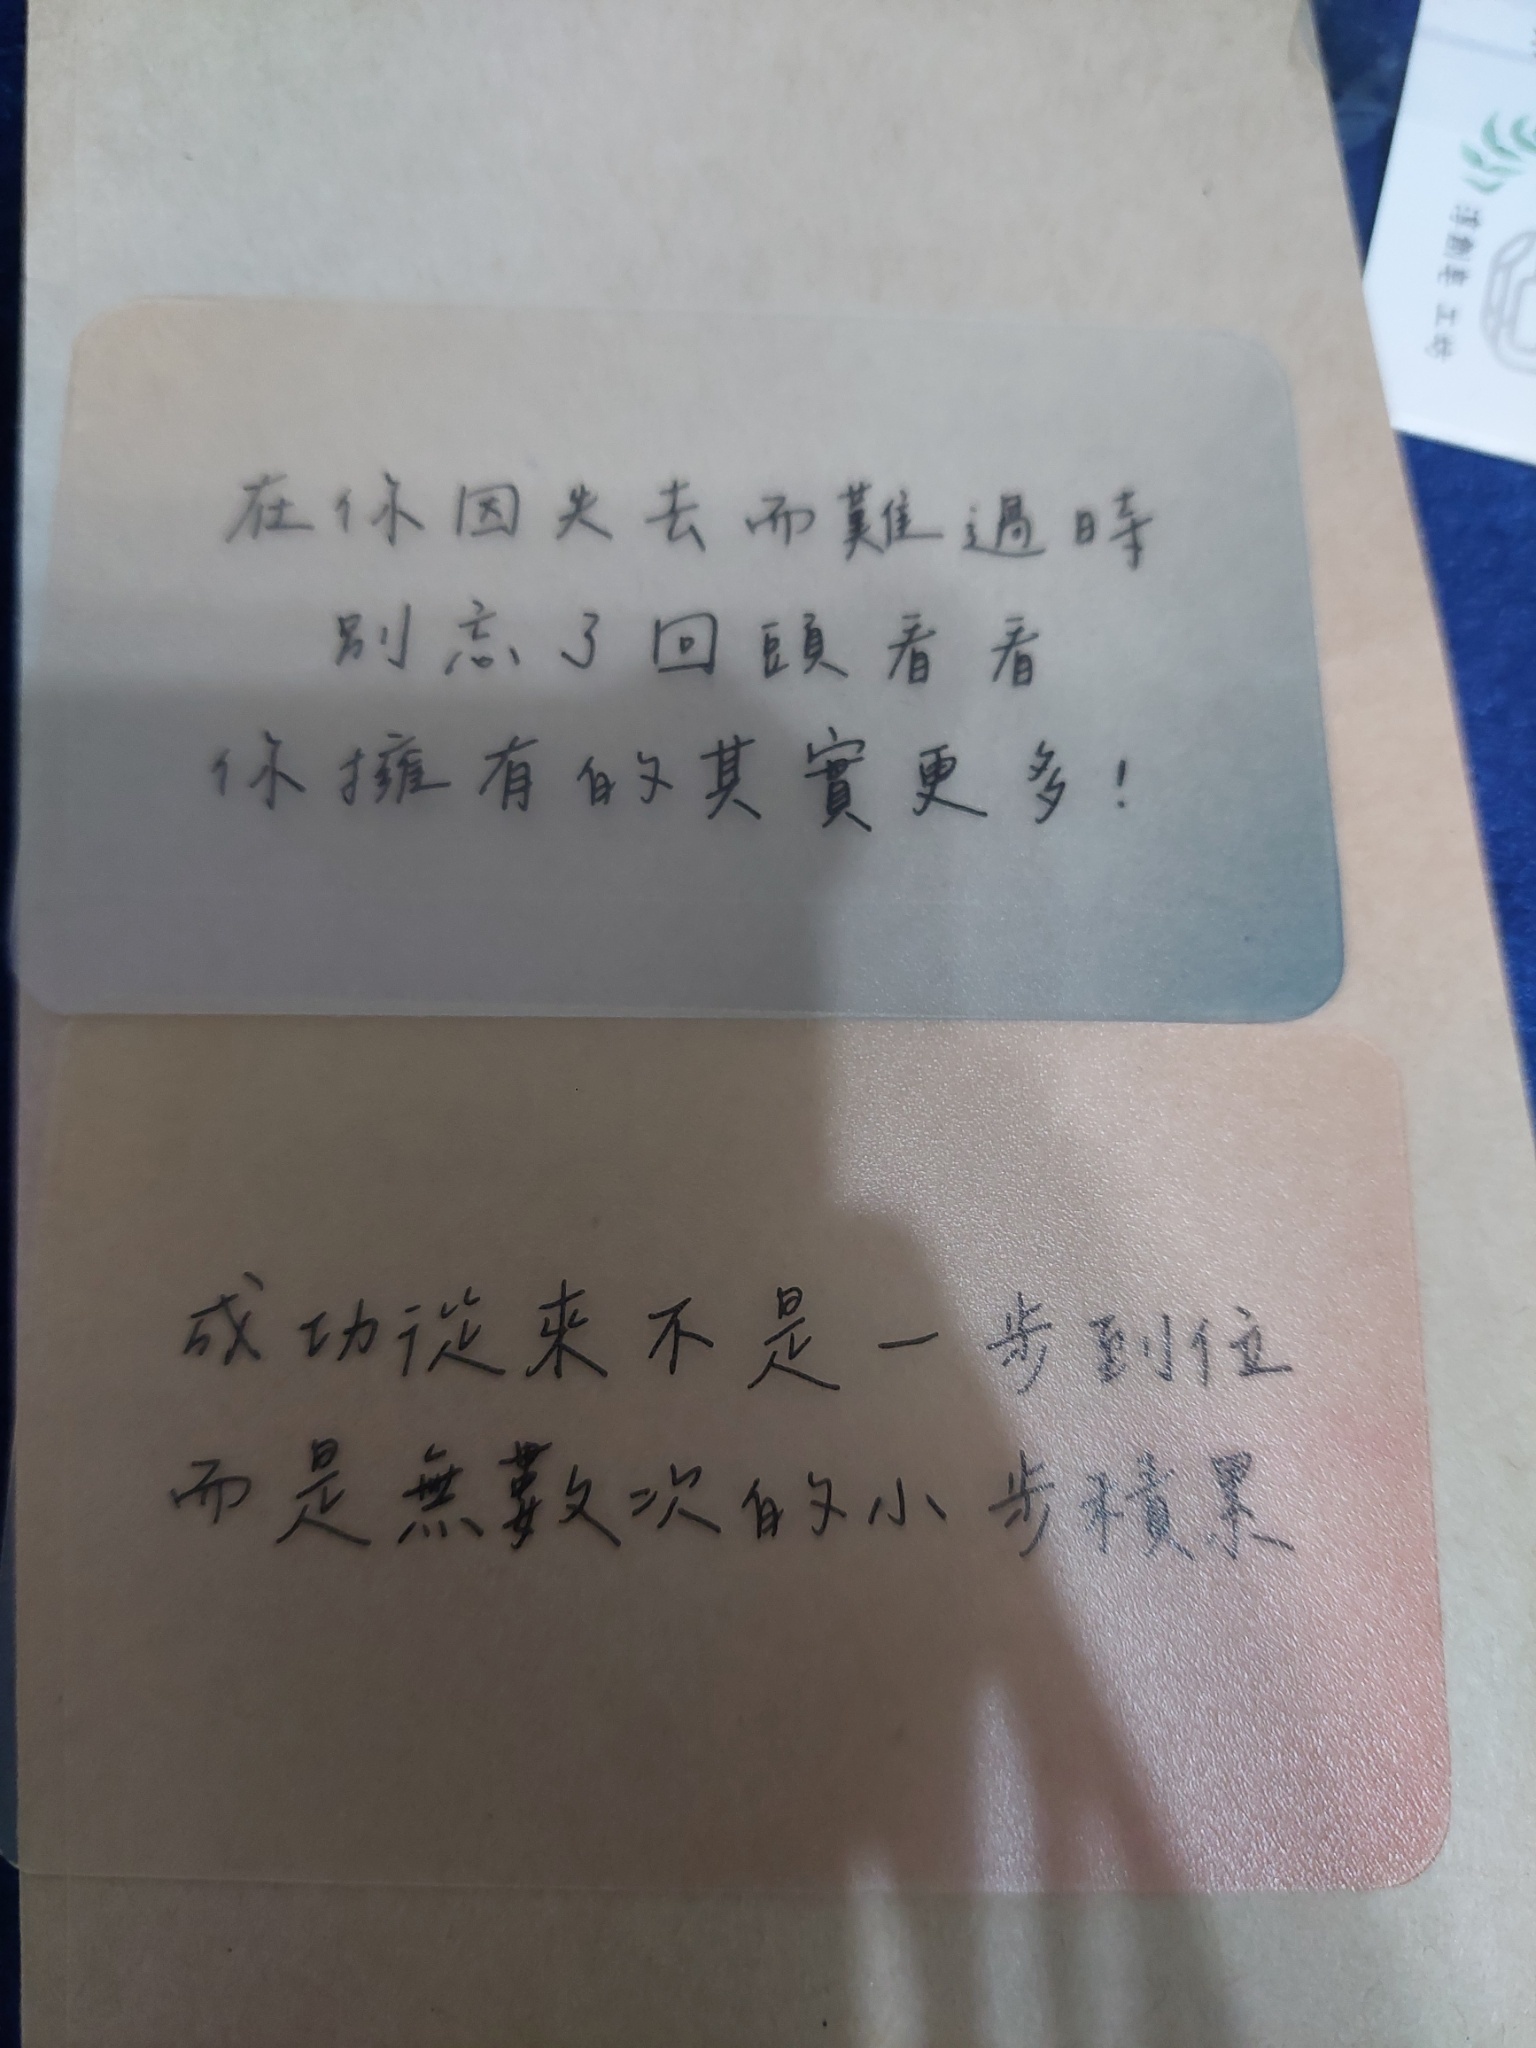 在你因失去而難過時
別忘了回頭看看
你擁有的其實更多!
成功從來不是一步到位
而是無數次的小步積累